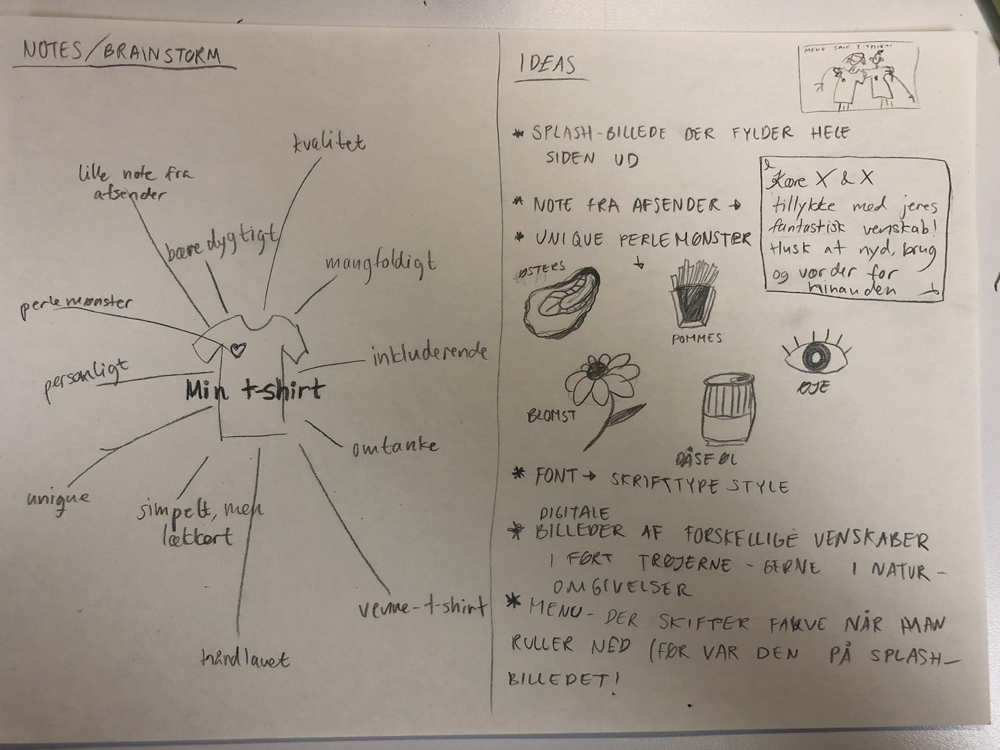 NOTES/BRAINSTORM
kvalitet
lille note fra
afsender
bæredygtigt
mangfoldigt
perlemønster
inkluderende
personligt
Min t-shirt
omtanke
unique
simpelt, men
lækkert
venne-t-shirt
håndlavet
IDEAS
MENU
* SPLASH-BILLEDE DER FYLDER HELE
SIDEN UD
* NOTE FRA AFSENDER →
Kære X & X
tillykke med jeres
fantastisk venskab!
Husk at nyd, brug
og vær der for
hinanden
* UNIQUE PERLEMØNSTER
ØSTERS
POMMES
ØJE
BLOMST
DÅSE ØL
* FONT → SKRIFTTYPE STYLE
DIGITALE
* BILLEDER AF FORSKELLIGE VENSKABER
I FØRT TRØJERNE - GERNE I NATUR-
OMGIVELSER
* MENU - DER SKIFTER FARVE NÅR MAN
RULLER NED (FØR VAR DEN PÅ SPLASH-
BILLEDET!